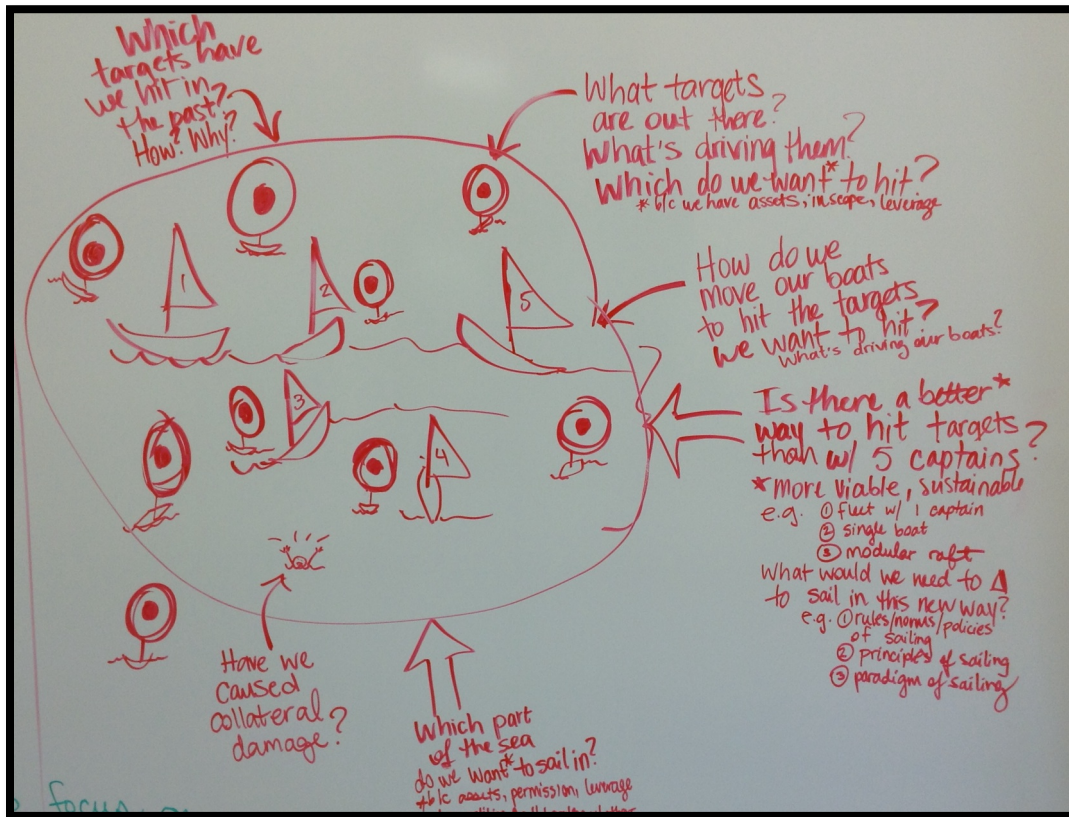 Which
targets have
we hit in
the past?
How? Why?
What targets
are out there?
What's driving them?
Which do we want* to hit?
*b/c we have assets, in scope, leverage
1
2
5
How do we
move our boats
to hit the targets
we want to hit?
What's driving our boats?
3
4
Is there a better*
way to hit targets
than w/ 5 captains?
*more viable, sustainable
e.g. ① fleet w/ 1 captain
② single boat
③ modular raft
What would we need to Δ
to sail in this new way?
e.g. ① rules/norms/policies
of sailing
② principles of sailing
③ paradigm of sailing
Have we
caused
collateral
damage?
Which part
of the sea
do we want* to sail in?
*b/c assets, permission, leverage
focus